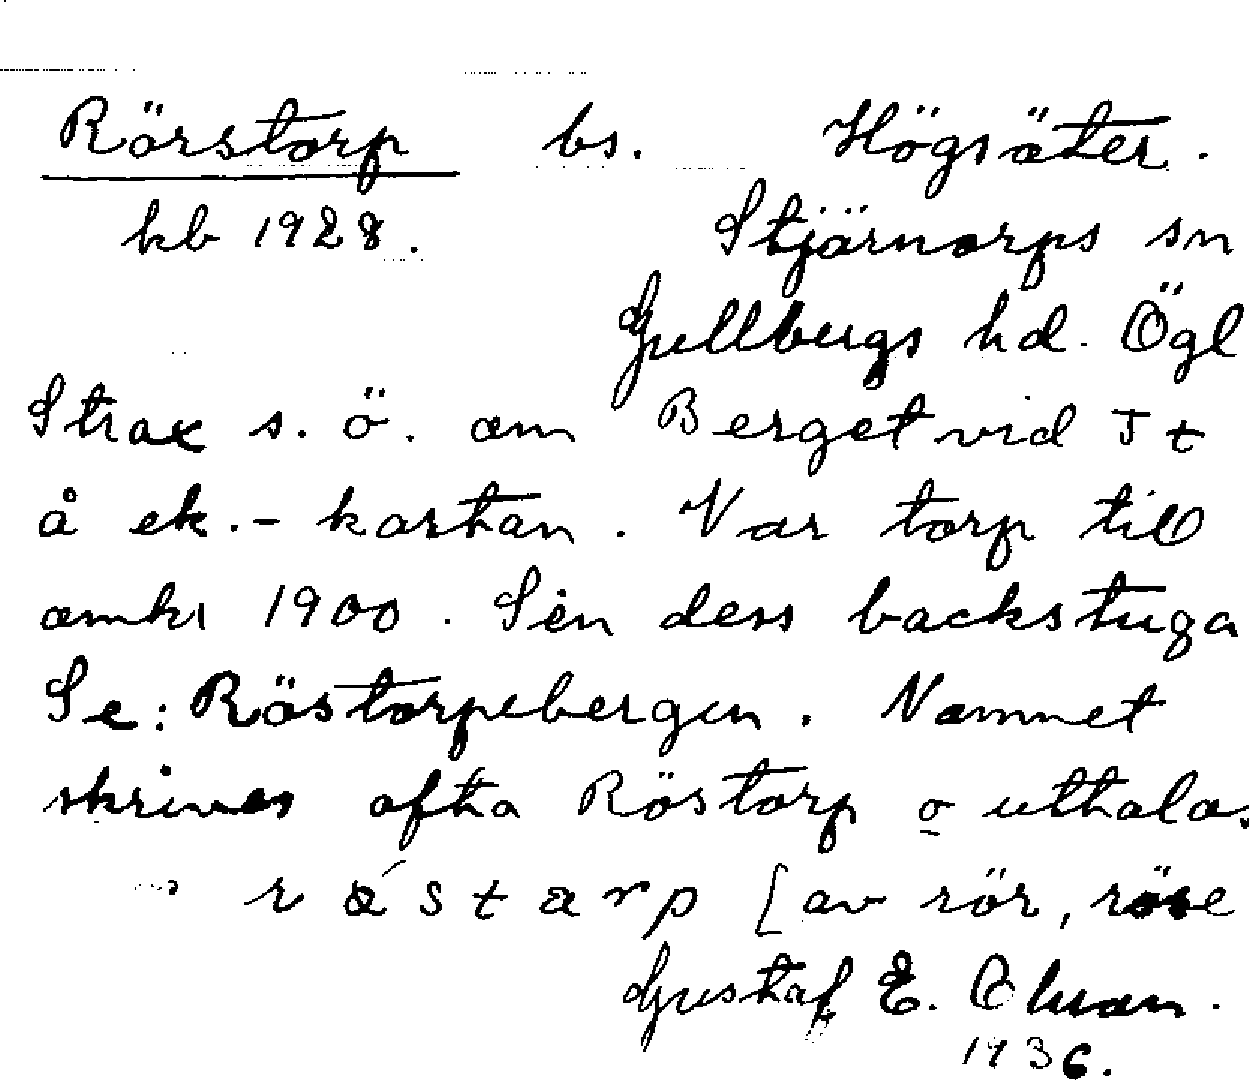 Rörstorp bs. Högsäter.
kb 1928. Stjärnorps sn
Gullbergs hd. Ögl
Strax s. ö. om Berget vid Jt
å ek.- kartan. Var torp till
omkr 1900. Sèn dess backstuga
Se: Röstorpebergen. Namnet
skrives ofta Röstorp o uttalas
[av rör, röse
Gustaf E. Olson.
1936.